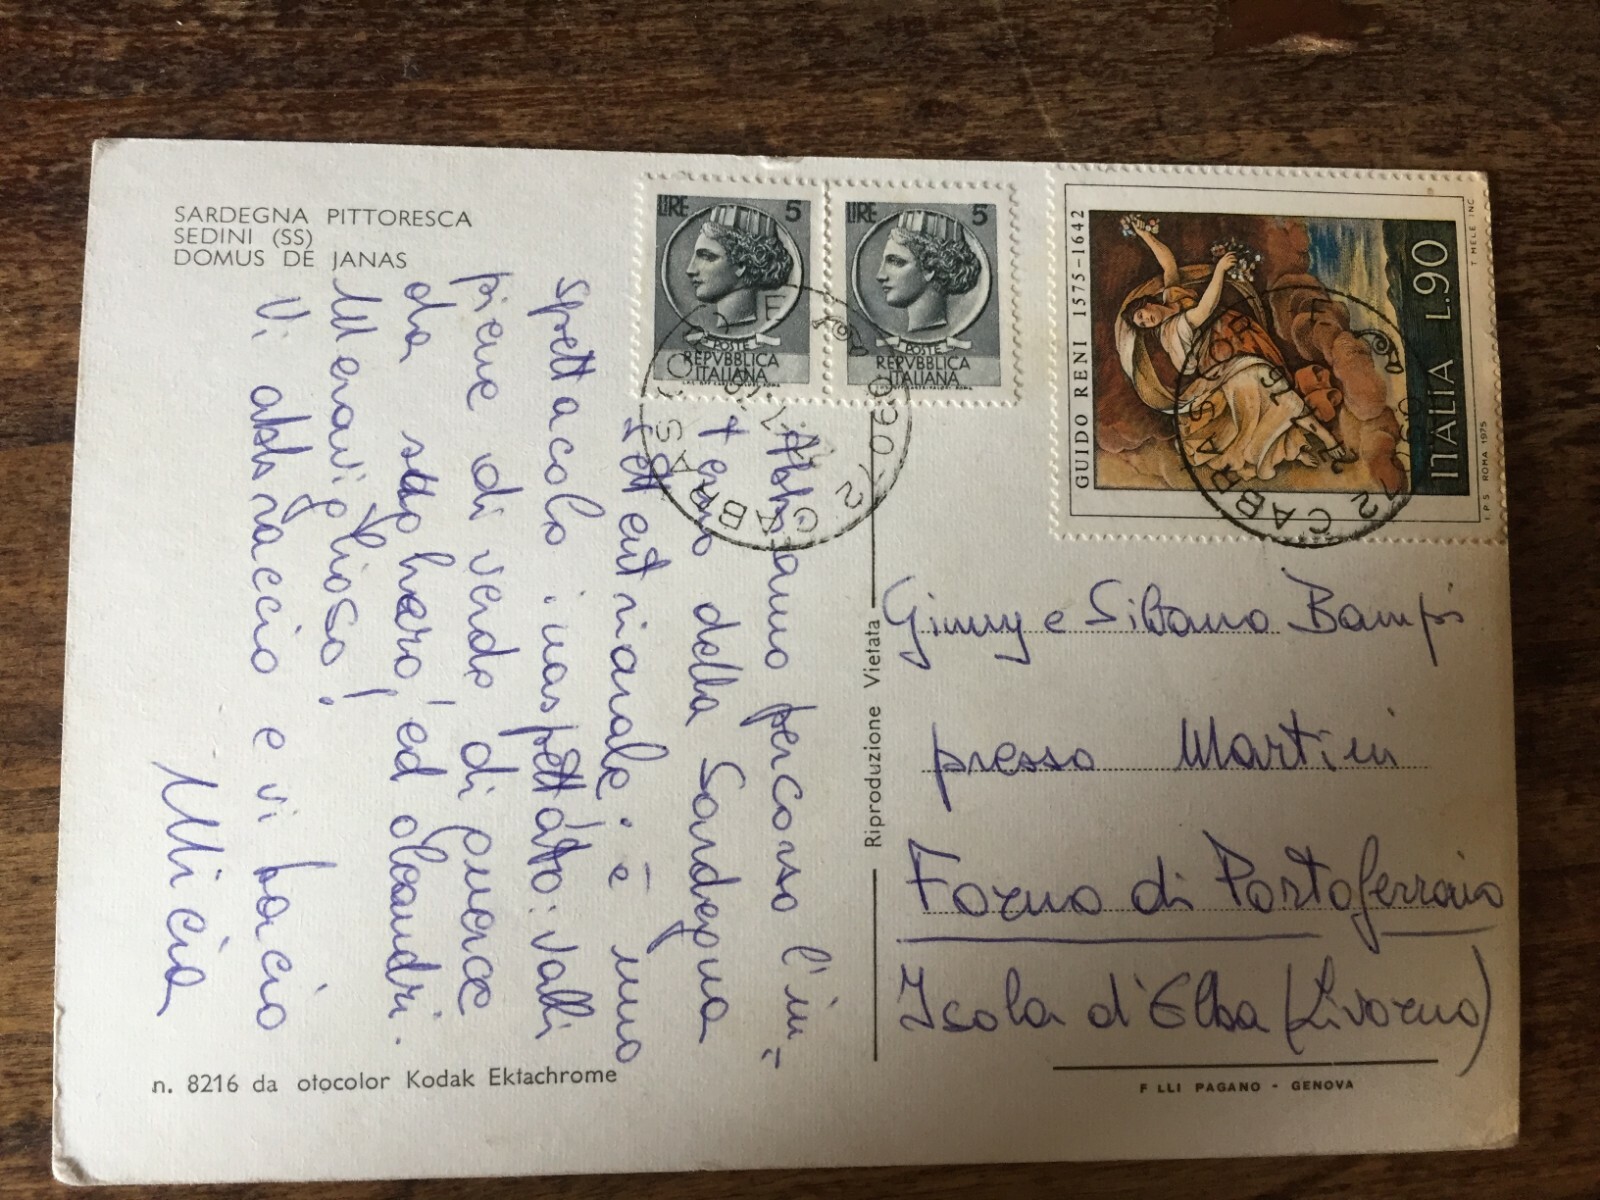 SARDEGNA PITTORESCA
SEDINI (SS)
DOMUS DE JANAS
LIRE 5
POSTE
REPVBBLICA
ITALIANA
LIRE 5
POSTE
REPVBBLICA
ITALIANA
GUIDO RENI 1575-1642
ITALIA L.90
T. MELE INC.
I.P.S. ROMA 1975
09072 CABRAS
09072 CABRAS
Abbiamo percorso l'in-
terno della Sardegna
settentrionale: è uno
spettacolo inaspettato: valli
piene di verde di querce
da sughero ed oleandri.
Meraviglioso!
Vi abbraccio e vi bacio
Micia
Riproduzione Vietata
Ginny e Silvano Bampi
presso Martini
Forno di Portoferraio
Isola d'Elba (Livorno)
n. 8216 da otocolor Kodak Ektachrome
F LLI PAGANO - GENOVA